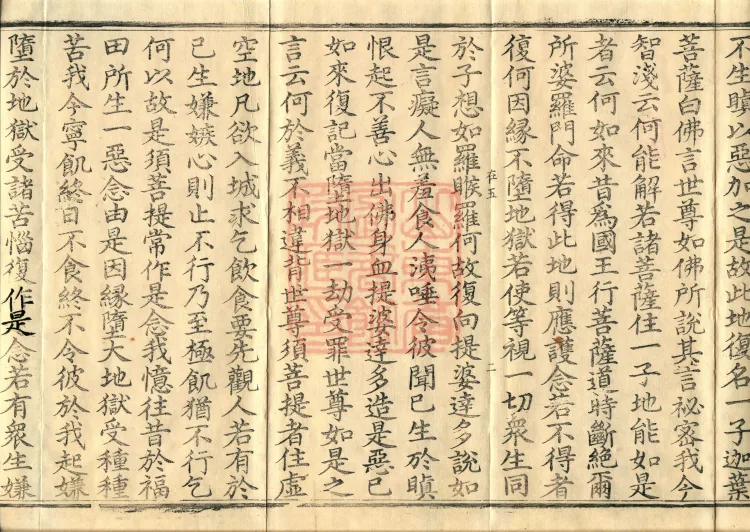 不生瞋以惡加之是故此地復名一子迦葉
菩薩白佛言世尊如佛所說其言祕密我今
智淺云何能解若諸菩薩住一子地能如是
者云何如來昔爲國王行菩薩道時斷絕爾
所婆羅門命若得此地則應護念若不得者
復何因緣不墮地獄若使等視一切衆生同
在五 二
於子想如羅睺羅何故復向提婆達多說如
是言癡人無羞食人洟唾令彼聞已生於瞋
恨起不善心出佛身血提婆達多造是惡已
如來復記當墮地獄一劫受罪世尊如是之
言云何於義不相違背世尊須菩提者住虛
空地凡欲入城求乞飲食要先觀人若有於
己生嫌嫉心則止不行乃至極飢猶不行乞
何以故是須菩提常作是念我憶往昔於福
田所生一惡念由是因緣墮大地獄受種種
苦我今寧飢終日不食終不令彼於我起嫌
墮於地獄受諸苦惱復作是念若有衆生嫌